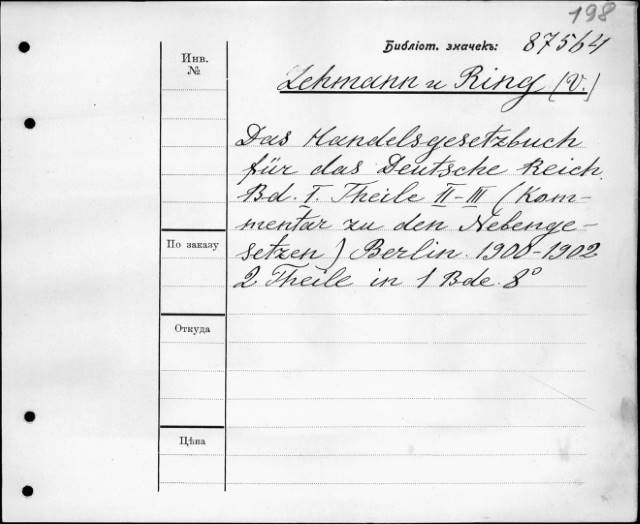 198
Библіот. значекъ: 87564
Инв.
№
Lehmann u Ring (V.)
Das Handelsgesetzbuch
für das Deutsche Reich.
Bd. I. Theile II-III (Kom-
mentar zu den Nebenge-
setzen) Berlin. 1900-1902
По заказу
2 Theile in 1 Bde. 8°
Откуда
Цѣна